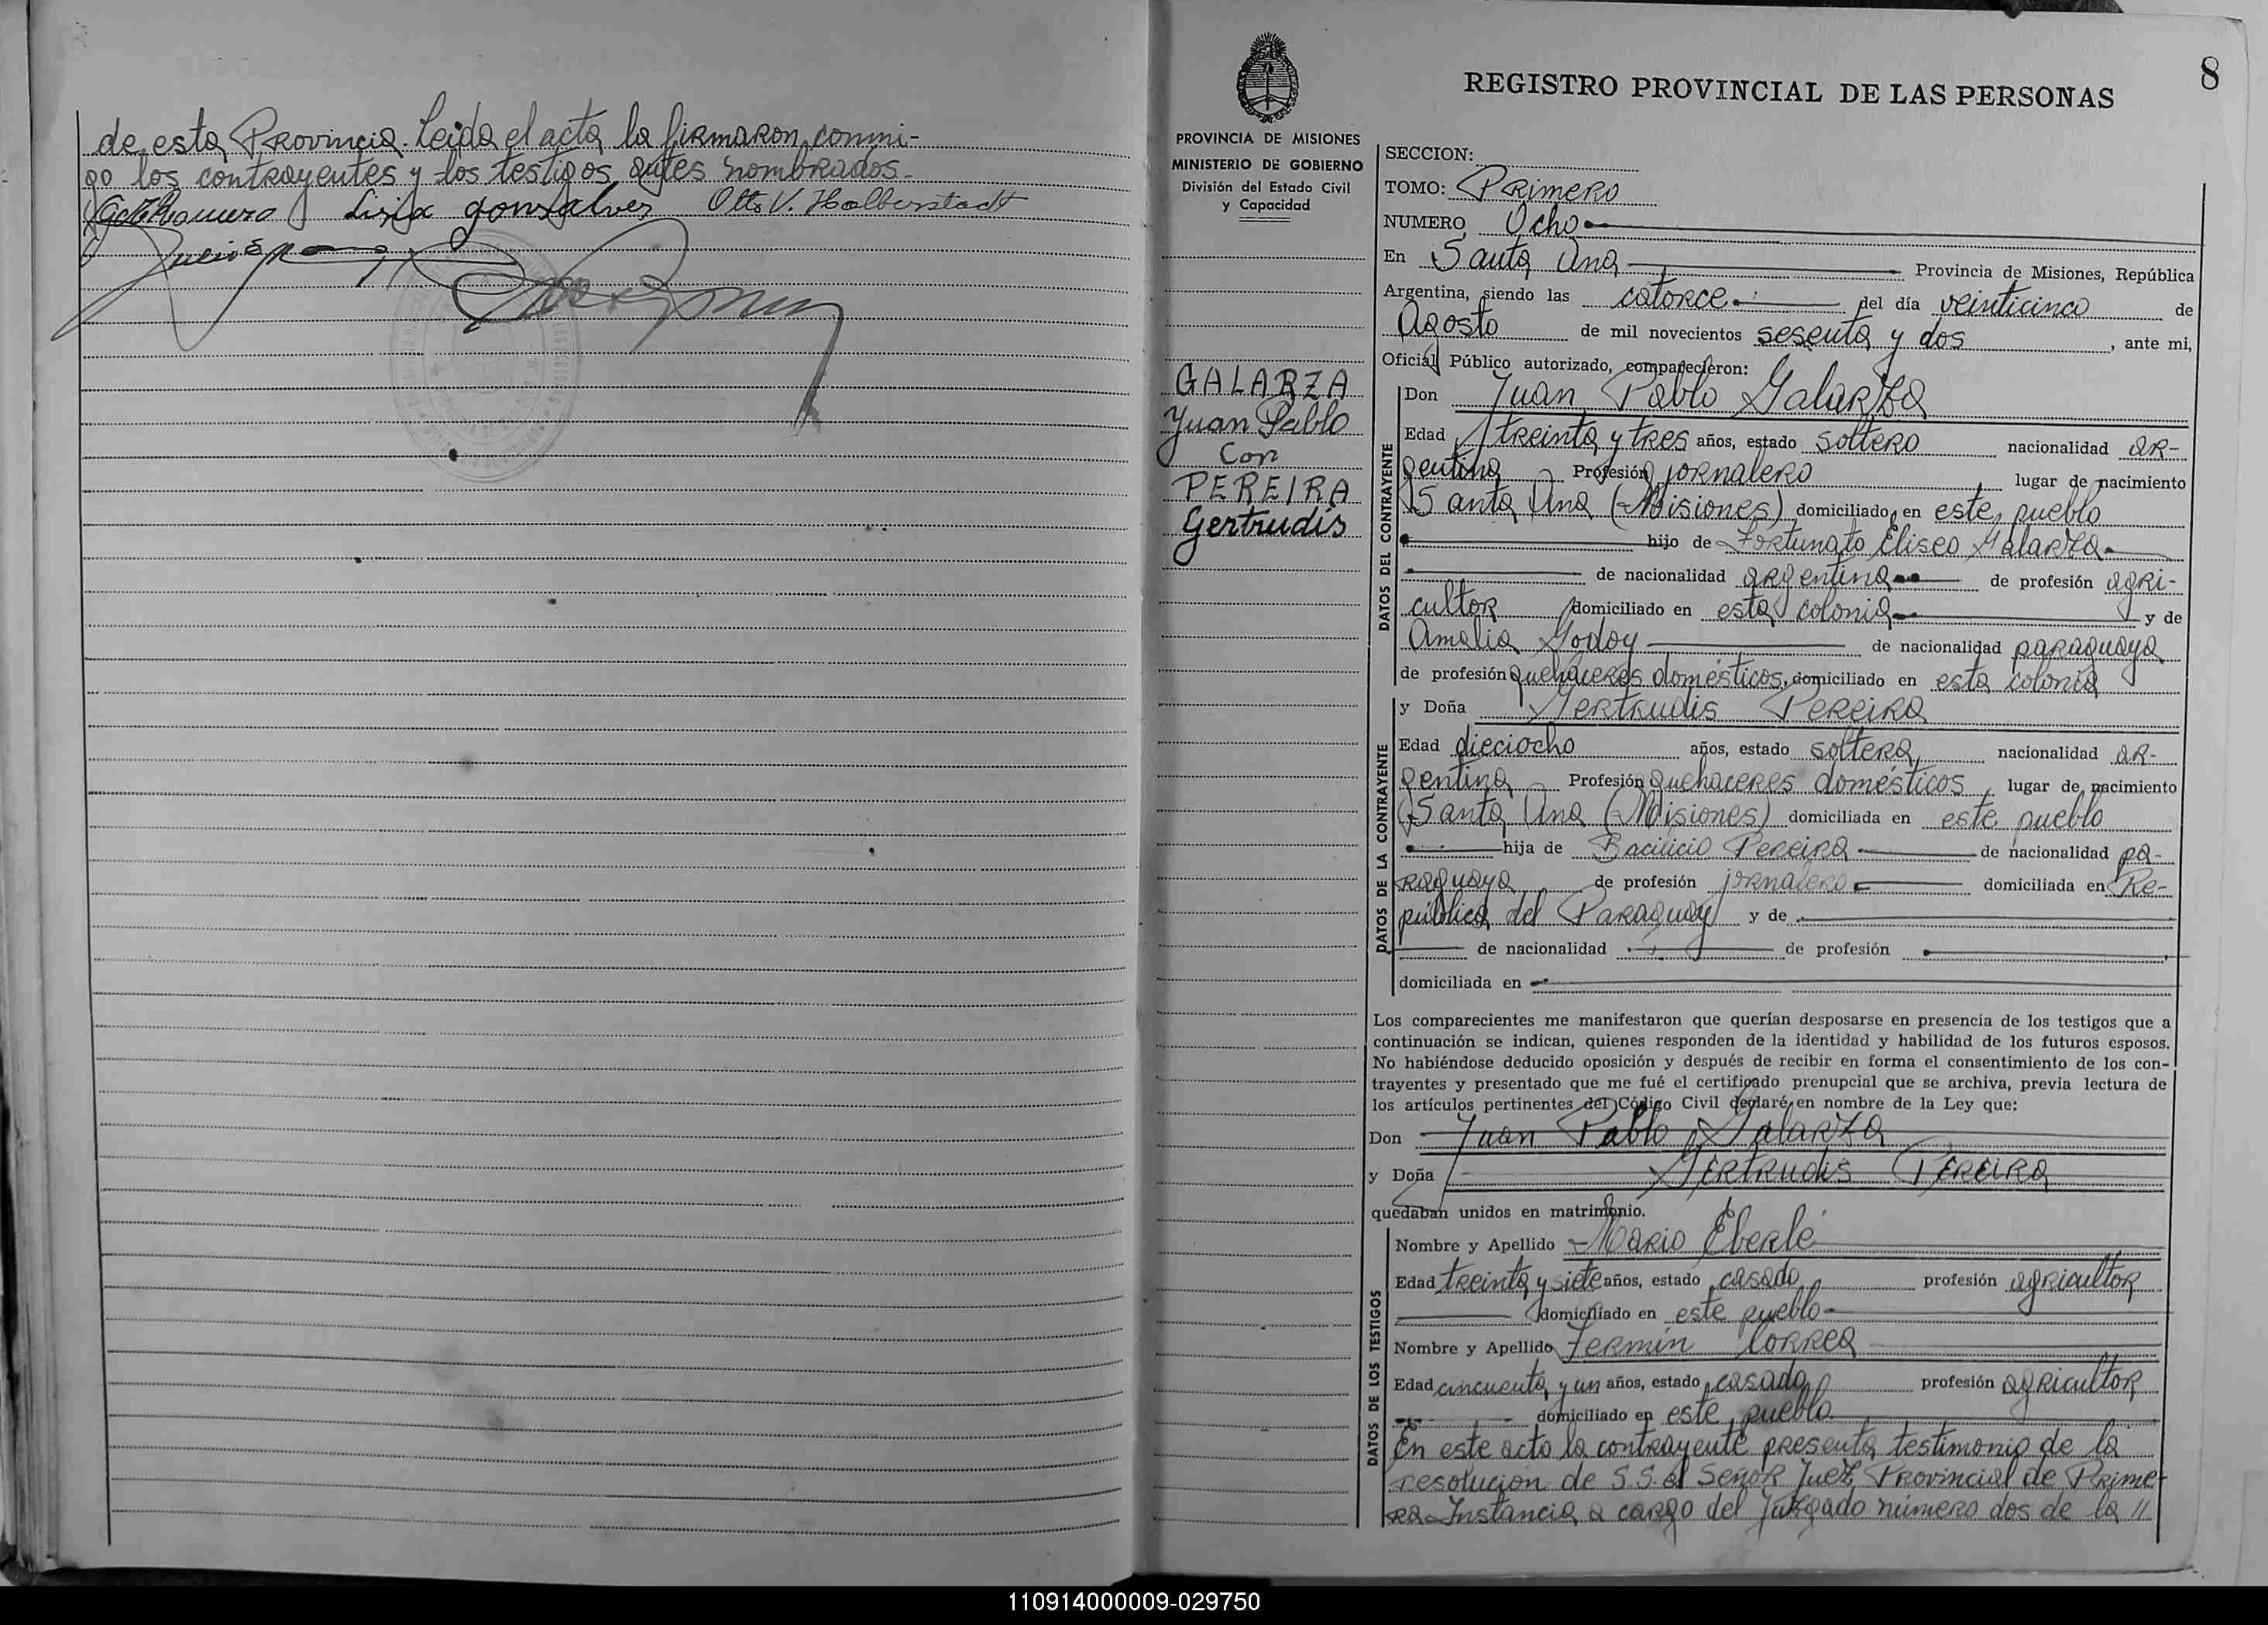 de esta Provincia. Leida el acta la firmaron conmi-
go los contrayentes y los testigos antes nombrados.
Lisia gonsalves Otto V. Halberstadt
8
REGISTRO PROVINCIAL DE LAS PERSONAS
PROVINCIA DE MISIONES
MINISTERIO DE GOBIERNO
División del Estado Civil
y Capacidad
GALARZA
Juan Pablo
Con
PEREIRA
Gertrudis
SECCION:
TOMO: Primero
NUMERO Ocho
En Santa Ana Provincia de Misiones, República
Argentina, siendo las catorce del día veinticinco de
Agosto de mil novecientos sesenta y dos, ante mi,
Oficial Público autorizado, comparecieron:
DATOS DEL CONTRAYENTE
Don Juan Pablo Galarza
Edad treinta y tres años, estado soltero nacionalidad ar-
gentina Profesión jornalero lugar de nacimiento
Santa Ana (Misiones) domiciliado en este pueblo
hijo de Fortunato Eliseo Galarza
de nacionalidad argentina de profesión agri-
cultor domiciliado en esta colonia y de
Amalia Godoy de nacionalidad paraguaya
de profesión quehaceres domésticos, domiciliado en esta colonia
DATOS DE LA CONTRAYENTE
y Doña Gertrudis Pereira
Edad dieciocho años, estado soltera, nacionalidad ar-
gentina Profesión quehaceres domésticos, lugar de nacimiento
Santa Ana (Misiones) domiciliada en este pueblo
hija de Bacilicio Pereira de nacionalidad pa-
raguaya de profesión jornalero domiciliada en Re-
pública del Paraguay y de
de nacionalidad de profesión
domiciliada en
Los comparecientes me manifestaron que querían desposarse en presencia de los testigos que a
continuación se indican, quienes responden de la identidad y habilidad de los futuros esposos.
No habiéndose deducido oposición y después de recibir en forma el consentimiento de los con-
trayentes y presentado que me fué el certificado prenupcial que se archiva, previa lectura de
los artículos pertinentes del Código Civil declaré en nombre de la Ley que:
Don Juan Pablo Galarza
y Doña Gertrudis Pereira
quedaban unidos en matrimonio.
DATOS DE LOS TESTIGOS
Nombre y Apellido Mario Eberlé
Edad treinta y siete años, estado casado, profesión agricultor
domiciliado en este pueblo
Nombre y Apellido Fermín Correa
Edad cincuenta y un años, estado casado profesión agricultor
domiciliado en este pueblo.
En este acto la contrayente presenta testimonio de la
resolución de S.S. el Señor Juez Provincial de Prime-
ra Instancia a cargo del Juzgado número dos de la //
110914000009-029750